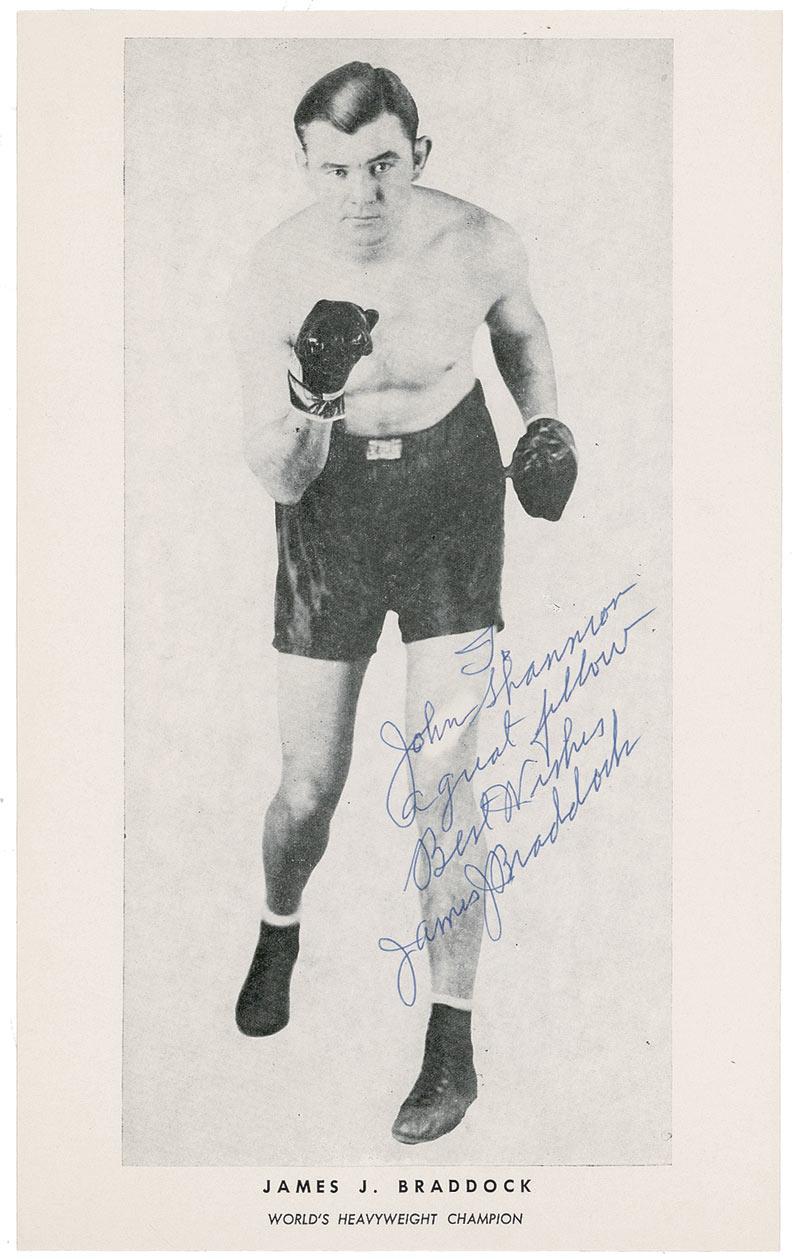 To
John Shannon
a great fellow
Best Wishes
James J Braddock
JAMES J. BRADDOCK
WORLD'S HEAVYWEIGHT CHAMPION